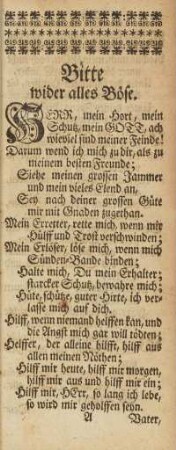 Bitte
wider alles Böse.
HERR, mein Hort, mein
Schutz, mein GOTT, ach
wieviel sind meiner Feinde!
Darum wend ich mich zu dir, als zu
meinem besten Freunde;
Siehe meinen grossen Jammer
und mein vieles Elend an,
Sey nach deiner grossen Güte
mir mit Gnaden zugethan.
Mein Erretter, rette mich, wenn mir
Hülff und Trost verschwinden;
Mein Erlöser, löse mich, wenn mich
Sünden-Bande binden;
Halte mich, Du mein Erhalter;
starcker Schutz, bewahre mich;
Hüte, schütze, guter Hirte, ich ver-
lasse mich auf dich.
Hilff, wenn niemand helffen kan, und
die Angst mich gar will tödten;
Helffer, der alleine hilfft, hilff aus
allen meinen Nöthen;
Hilff mir heute, hilff mir morgen,
hilff mir aus und hilff mir ein;
Hilff mir, HErr, so lang ich lebe,
so wird mir geholffen seyn.
A Vater,